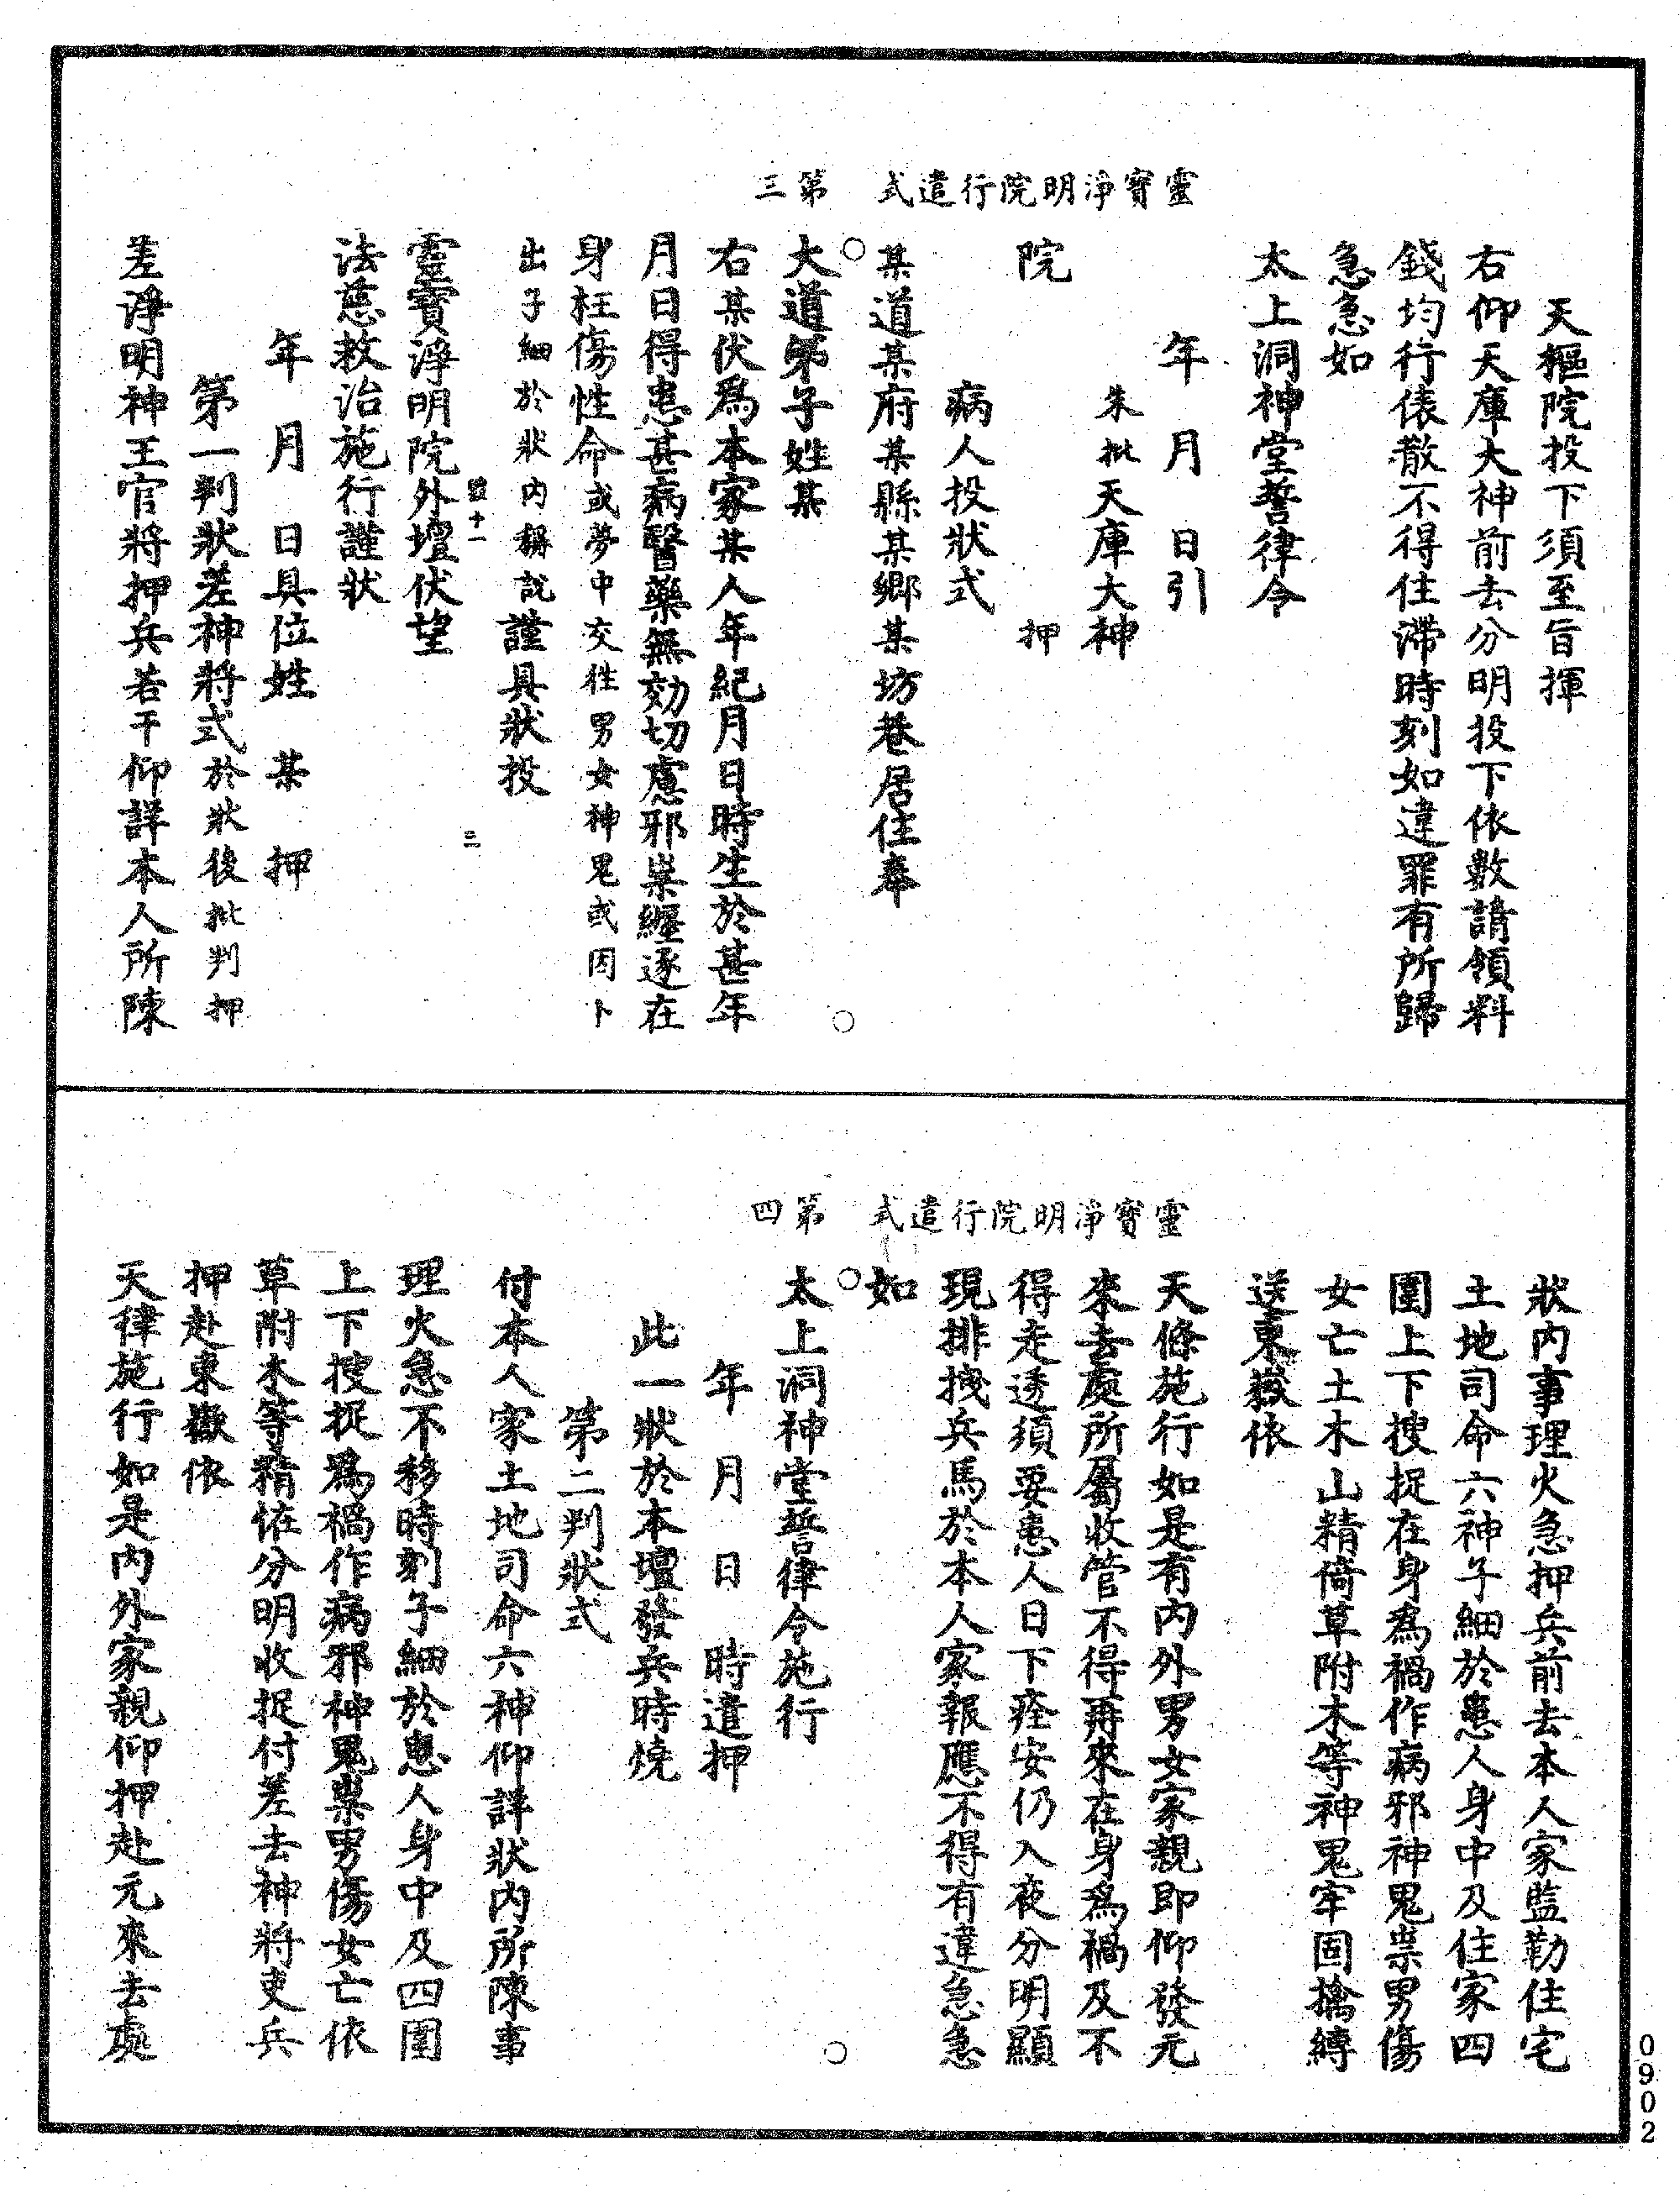 靈寶淨明院行遣式　第三
天樞院投下須至旨揮
右仰天庫大神前去分明投下依數請領料
錢均行俵散不得住滯時刻如違罪有所歸
急急如
太上洞神堂誓律令
年　月　日引
朱批天庫大神
院　押
病人投狀式
某道某府某縣某鄉某坊巷居住奉
大道弟子姓某
右某伏爲本家某人年紀月日時生於甚年
月日得患甚病醫藥無効切慮邪祟纏逐在
身枉傷性命或夢中交徃男女神鬼或因卜
出子細於狀內稱說謹具狀投
十一　三
靈寶淨明院外壇伏望
法慈救治施行謹狀
年　月　日具位姓　某　押
第一判狀差神將式於狀後批判押
差淨明神王官將押兵若干仰詳本人所陳
靈寶淨明院行遣式　第四
狀內事理火急押兵前去本人家監勒住宅
土地司命六神子細於患人身中及住家四
圍上下搜捉在身爲禍作病邪神鬼祟男傷
女亡土木山精倚草附木等神鬼牢固擒縛
送東嶽依
天條施行如是有內外男女家親即仰發元
來去處所屬收管不得再來在身爲禍及不
得走透須要患人日下痊安仍入夜分明顯
現排拽兵馬於本人家報應不得有違急急
如
太上洞神堂誓律令施行
年　月　日　時遣押
此一狀於本壇發兵時燒
第二判狀式
付本人家土地司命六神仰詳狀內所陳事
理火急不移時刻子細於患人身中及四圍
上下搜捉爲禍作病邪神鬼祟男傷女亡依
草附木等精恠分明收捉付差去神將吏兵
押赴東嶽依
天律施行如是內外家親仰押赴元來去處
0902